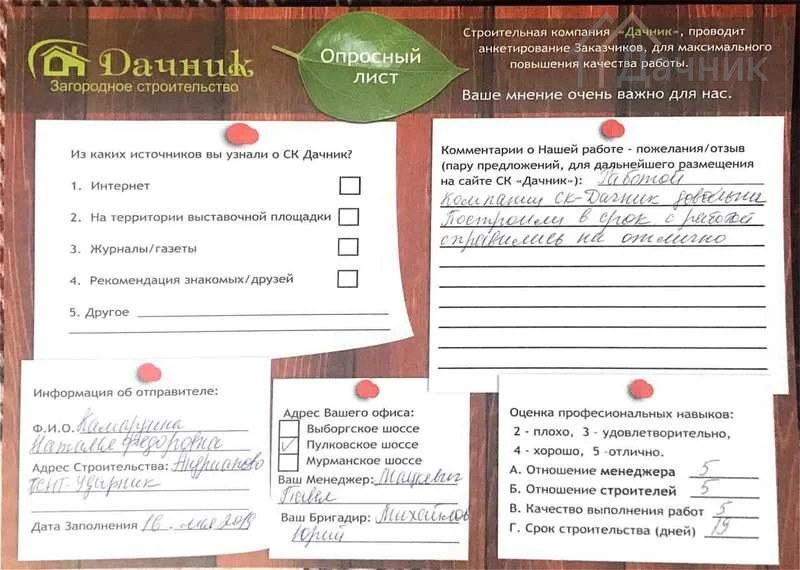 Дачник
Загородное строительство
Опросный
лист
Строительная компания «Дачник», проводит
анкетирование Заказчиков, для максимального
повышения качества работы.
Дачник
Ваше мнение очень важно для нас.
Из каких источников вы узнали о СК Дачник?
1. Интернет
2. На территории выставочной площадки
3. Журналы/газеты
4. Рекомендация знакомых/друзей
5. Другое
Комментарии о Нашей работе - пожелания/отзыв
(пару предложений, для дальнейшего размещения
на сайте СК «Дачник»): Работой
Компании СК-Дачник довольны
Построили в срок с работой
справились на отлично
Информация об отправителе:
Ф.И.О.
Наталья Федоровна
Адрес Строительства: Андрианово
Тент-Ударник
Дата Заполнения 16. мая 2019
Адрес Вашего офиса:
Выборгское шоссе
Пулковское шоссе
Мурманское шоссе
Ваш Менеджер: Мацкевич
Павел
Ваш Бригадир: Михайлов
Юрий
Оценка професиональных навыков:
2 - плохо, 3 - удовлетворительно,
4 - хорошо, 5 -отлично.
А. Отношение менеджера 5
Б. Отношение строителей 5
В. Качество выполнения работ 5
Г. Срок строительства (дней) 19